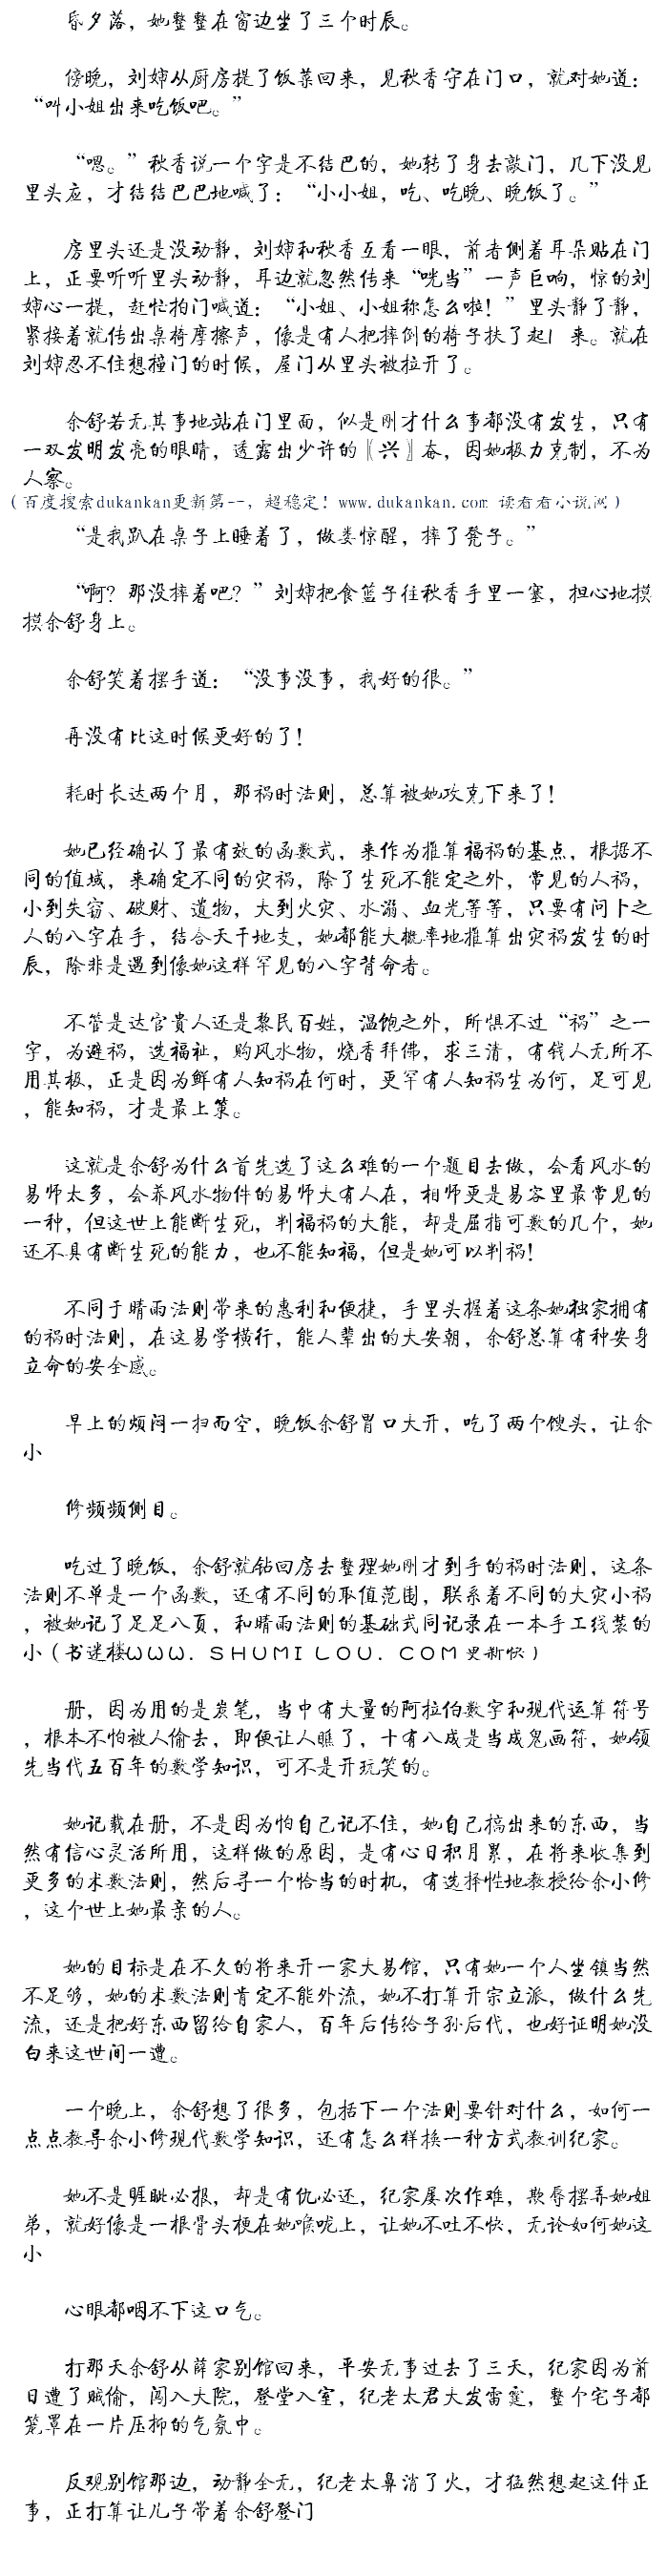 昏夕落，她整整在窗边坐了三个时辰。
傍晚，刘婶从厨房提了饭菜回来，见秋香守在门口，就对她道：
“叫小姐出来吃饭吧。”
“嗯。”秋香说一个字是不结巴的，她转了身去敲门，几下没见
里头应，才结结巴巴地喊了：“小小姐，吃、吃晚、晚饭了。”
房里头还是没动静，刘婶和秋香互看一眼，前者侧着耳朵贴在门
上，正要听听里头动静，耳边就忽然传来“咣当”一声巨响，惊的刘
婶心一提，赶忙拍门喊道：“小姐、小姐称怎么啦！”里头静了静，
紧接着就传出桌椅摩擦声，像是有人把摔倒的椅子扶了起1 来。就在
刘婶忍不住想撞门的时候，屋门从里头被拉开了。
余舒若无其事地站在门里面，似是刚才什么事都没有发生，只有
一双发明发亮的眼睛，透露出少许的〖兴〗奋，因她极力克制，不为
人察。
（百度搜索dukankan更新第--，超稳定！www.dukankan.com 读看看小说网）
“是我趴在桌子上睡着了，做娄惊醒，摔了凳子。”
“啊？那没摔着吧？”刘婶把食篮子往秋香手里一塞，担心地摸
摸余舒身上。
余舒笑着摆手道：“没事没事，我好的很。”
再没有比这时候更好的了！
耗时长达两个月，那祸时法则，总算被她攻克下来了！
她已经确认了最有效的函数式，来作为推算福祸的基点，根据不
同的值域，来确定不同的灾祸，除了生死不能定之外，常见的人祸，
小到失窃、破财、遗物，大到火灾、水溺、血光等等，只要有问卜之
人的八字在手，结合天干地支，她都能大概率地推算出灾祸发生的时
辰，除非是遇到像她这样罕见的八字背命者。
不管是达官贵人还是黎民百姓，温饱之外，所惧不过“祸”之一
字，为避祸，选福祉，购风水物，烧香拜佛，求三清，有钱人无所不
用其极，正是因为鲜有人知祸在何时，更罕有人知祸生为何，足可见
，能知祸，才是最上策。
这就是余舒为什么首先选了这么难的一个题目去做，会看风水的
易师太多，会养风水物件的易师大有人在，相师更是易容里最常见的
一种，但这世上能断生死，判福祸的大能，却是屈指可数的几个，她
还不具有断生死的能力，也不能知福，但是她可以判祸！
不同于晴雨法则带来的惠利和便捷，手里头握着这条她独家拥有
的祸时法则，在这易学横行，能人辈出的大安朝，余舒总算有种安身
立命的安全感。
早上的烦闷一扫而空，晚饭余舒胃口大开，吃了两个馊头，让余
小
修频频侧目。
吃过了晚饭，余舒就钻回房去整理她刚才到手的祸时法则，这条
法则不单是一个函数，还有不同的取值范围，联系着不同的大灾小祸
，被她记了足足八頁，和晴雨法则的基础式同记录在一本手工线装的
小（书迷楼ＷＷＷ．ＳＨＵＭＩＬＯＵ．ＣＯＭ更新快）
册，因为用的是炭笔，当中有大量的阿拉伯数字和现代运算符号
，根本不怕被人偷去，即便让人瞧了，十有八成是当成鬼画符，她领
先当代五百年的数学知识，可不是开玩笑的。
她记载在册，不是因为怕自己记不住，她自己搞出来的东西，当
然有信心灵活所用，这样做的原因，是有心日积月累，在将来收集到
更多的术数法则，然后寻一个恰当的时机，有选择性地教授给余小修
，这个世上她最亲的人。
她的目标是在不久的将来开一家大易馆，只有她一个人坐镇当然
不足够，她的术数法则肯定不能外流，她不打算开宗立派，做什么先
流，还是把好东西留给自家人，百年后传给子孙后代，也好证明她没
白来这世间一遭。
一个晚上，余舒想了很多，包括下一个法则要针对什么，如何一
点点教导余小修现代数学知识，还有怎么样换一种方式教训纪家。
她不是睚眦必报，却是有仇必还，纪家屡次作难，欺辱摆弄她姐
弟，就好像是一根骨头梗在她喉咙上，让她不吐不快，无论如何她这
小
心眼都咽不下这口气。
打那天余舒从薛家别馆回来，平安无事过去了三天，纪家因为前
日遭了贼偷，闯入大院，登堂入室，纪老太君大发雷霆，整个宅子都
笼罩在一片压抑的气氛中。
反观别馆那边，动静全无，纪老太鼻消了火，才猛然想起这件正
事，正打算让儿子带着余舒登门